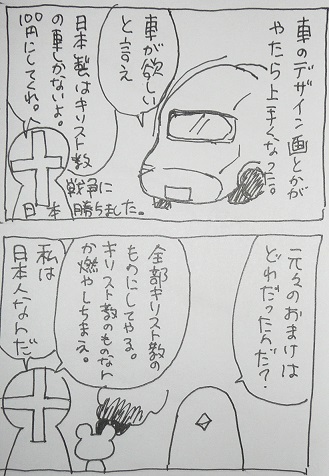 車のデザイン画とかが
やたら上手くなった。
車が欲しい
と言え
日本製はキリスト教
の車しかないよ。
100円にしてくれ。
戦争に
勝ちました。
日本
元々のおまけは
どれだったんだ?
全部キリスト教の
ものにしてやる。
キリスト教のものなん
か燃やしちまえ。
私は
日本人なんだ